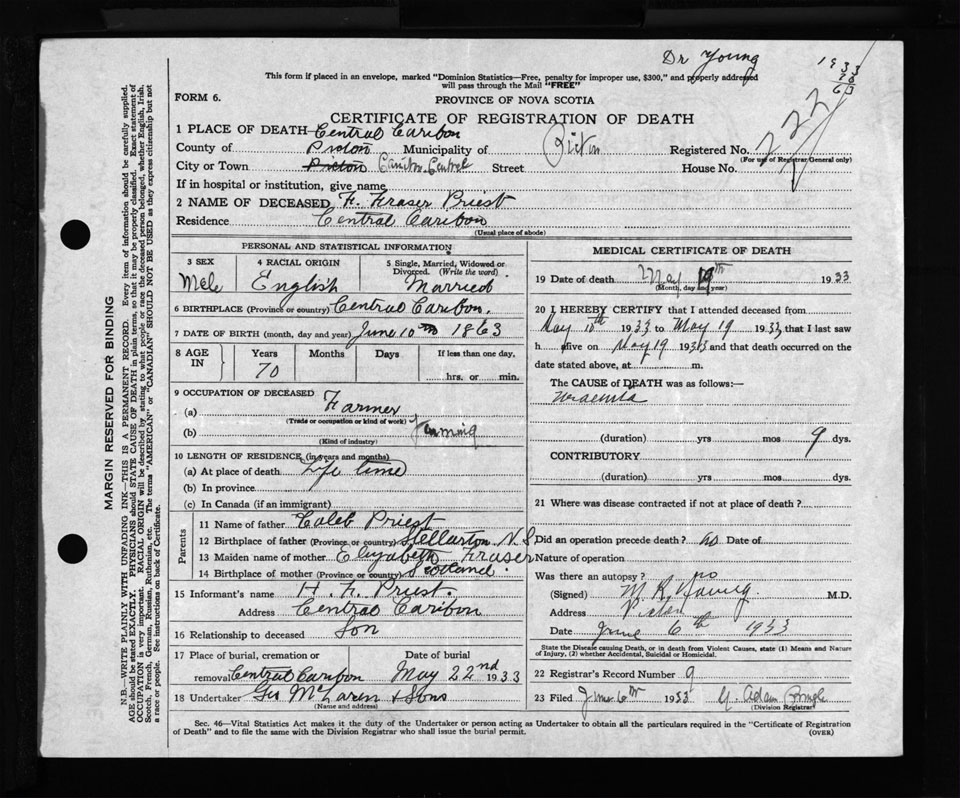 Dr Young
1933
This form if placed in an envelope, marked "Dominion Statistics—Free, penalty for improper use, $300," and properly addressed
will pass through the Mail "FREE"
FORM 6.
PROVINCE OF NOVA SCOTIA
CERTIFICATE OF REGISTRATION OF DEATH
1 PLACE OF DEATH Central Caribou
County of Pictou Municipality of Pictou Registered No. 222
(For use of Registrar General only)
City or Town Pictou Central Street House No.
If in hospital or institution, give name
2 NAME OF DECEASED H. Fraser Priest
Residence Central Caribou
(Usual place of abode)
PERSONAL AND STATISTICAL INFORMATION
3 SEX Male
4 RACIAL ORIGIN English
5 Single, Married, Widowed or Divorced. (Write the word) Married
6 BIRTHPLACE (Province or country) Central Caribou.
7 DATE OF BIRTH (month, day and year) June 10th 1863
8 AGE IN Years 70 Months Days If less than one day, hrs. or min.
9 OCCUPATION OF DECEASED
(a) Farmer
(Trade or occupation or kind of work)
(b) Farming
(Kind of industry)
10 LENGTH OF RESIDENCE (in years and months)
(a) At place of death Life time
(b) In province
(c) In Canada (if an immigrant)
Parents
11 Name of father Caleb Priest
12 Birthplace of father (Province or country) Stellarton N.S
13 Maiden name of mother Elizabeth Fraser
14 Birthplace of mother (Province or country) Scotland.
15 Informant's name H. F. Priest.
Address Central Caribou
16 Relationship to deceased Son
17 Place of burial, cremation or removal Central Caribou
Date of burial May 22nd 1933
18 Undertaker Geo McLaren & Sons
(Name and address)
MEDICAL CERTIFICATE OF DEATH
19 Date of death May 19th 1933
(Month, day and year)
20 I HEREBY CERTIFY that I attended deceased from
May 10th 1933 to May 19 1933 that I last saw
h alive on May 19 1933 and that death occurred on the
date stated above, at m.
The CAUSE of DEATH was as follows:—
Uraemia
(duration) yrs mos 9 dys.
CONTRIBUTORY
(duration) yrs mos dys.
21 Where was disease contracted if not at place of death?
Did an operation precede death? no Date of
Nature of operation
Was there an autopsy? no
(Signed) M. R. Young M.D.
Address Pictou
Date June 6th 1933
State the Disease causing Death, or in death from Violent Causes, state (1) Means and Nature
of Injury, (2) whether Accidental, Suicidal or Homicidal.
22 Registrar's Record Number 9
23 Filed June 6th 1933 Adam
(Division Registrar)
Sec. 46—Vital Statistics Act makes it the duty of the Undertaker or person acting as Undertaker to obtain all the particulars required in the "Certificate of Registration
of Death" and to file the same with the Division Registrar who shall issue the burial permit. (OVER)
MARGIN RESERVED FOR BINDING
N.B.—WRITE PLAINLY WITH UNFADING INK—THIS IS A PERMANENT RECORD. Every item of information should be carefully supplied.
AGE should be stated EXACTLY. PHYSICIANS should STATE CAUSE OF DEATH in plain terms, so that it may be properly classified. Exact statement of
OCCUPATION is very important. RACIAL ORIGIN will be described by stating to what people or race the deceased person belonged, whether English, Irish,
Scotch, French, German, Russian, Ruthenian, etc. The terms "AMERICAN" or "CANADIAN" SHOULD NOT BE USED as they express citizenship but not
a race or people. See instructions on back of Certificate.